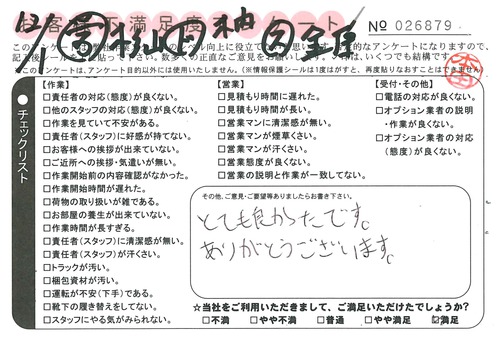 お客様不満足度 ート No 026879
記入後シールを貼って下さい。多数のご正直なご意見をお願いします。いつでも結構です。
このアンケートは、アンケート目的以外には使用いたしません。(※情報保護シールは1度がはすと、再度貼りなおすことはできません)
チェックリスト
【作業】
□責任者の対応(態度)が良くない。
□他のスタッフの対応(態度)が良くない。
□作業を見ていて不安がある。
□責任者(スタッフ)に好感が持てない。
□お客様への挨拶が出来ていない。
□ご近所への挨拶・気遣いが無い。
□作業開始前の内容確認がなかった。
□作業開始時間が遅れた。
□荷物の取り扱いが雑である。
□お部屋の養生が出来ていない。
□作業時間が長すぎる。
□責任者(スタッフ)に清潔感が無い。
□責任者(スタッフ)が汗くさい。
□トラックが汚い。
□梱包資材が汚い。
□運転が不安(下手)である。
□靴下の履き替えをしてない。
□スタッフにやる気がみられない。
【営業】
□見積もり時間に遅れた。
□見積もり時間が長い。
□営業マンに清潔感が無い。
□営業マンが煙草くさい。
□営業マンが汗くさい。
□営業態度が良くない。
□営業の説明と作業が一致してない。
【受付・その他】
□電話の対応が良くない。
□オプション業者の説明
・作業が良くない。
□オプション業者の対応
(態度)が良くない。
その他、ご意見・ご要望等ありましたらお書き下さい。
とても良かったです。
ありがとうございます。
★当社をご利用いただきまして、ご満足いただけたでしょうか?
□不満 □やや不満 □普通 □やや満足 ☑満足